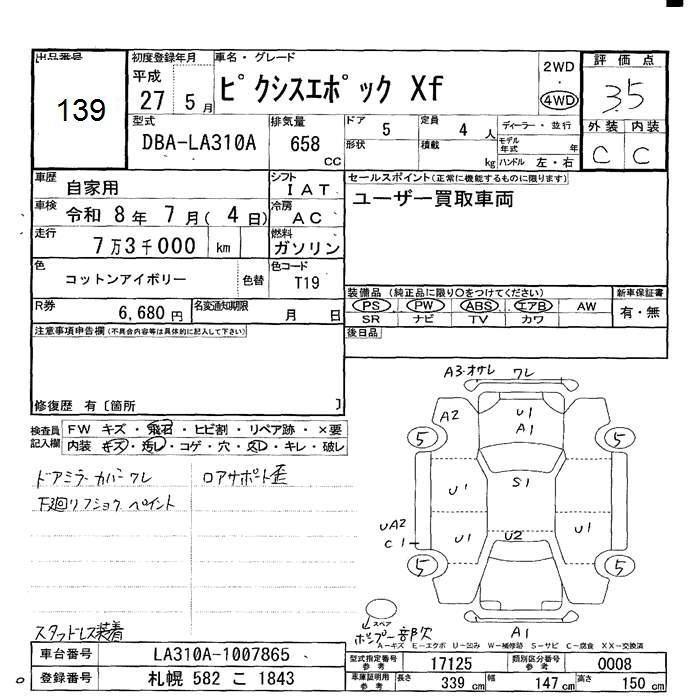 出品番号
139
初度登録年月
平成
27 5月
車名・グレード
ピクシスエポック Xf
2WD
・
4WD
評価点
3.5
外装 内装
C C
型式
DBA-LA310A
排気量
658
CC
ドア
5
定員
4 人
形状
積載
kg
ディーラー・並行
モデル年式 年
ハンドル 左・右
車歴
自家用
シフト
IAT
車検
令和 8年 7月( 4日)
冷房
AC
走行
7万3千000 km
燃料
ガソリン
色
コットンアイボリー
色替
色コード
T19
R券
6,680円
名変通知期限
月 日
セールスポイント(正常に機能するものに限ります)
ユーザー買取車両
装備品 (純正品に限り○をつけてください)
PS PW ABS エアB AW
SR ナビ TV カワ
新車保証書
有・無
後日品
注意事項申告欄(不具合内容等は具体的に記入して下さい)
修復歴 有〔箇所 〕
検査員記入欄
FW キズ・飛石・ヒビ割・リペア跡・×要
内装 キズ・汚レ・コゲ・穴・スレ・キレ・破レ
ドアミラーカバーワレ
ロアサポート歪
下廻リフショク ペイント
スタッドレス装着
A3・オサレ ワレ
A2
U1
A1
5
5
S1
U1
UA2
C1
U1
U1
U2
5
5
スペア
ホンプー部欠
A1
A-キズ E-エクボ U-凹み W-補修跡 S-サビ C-腐食 XX-交換済
車台番号
LA310A-1007865
登録番号
札幌 582 こ 1843
型式指定番号
参考
17125
類別区分番号
参考
0008
車庫証明用
参考
長さ 339 cm
幅 147 cm
高さ 150 cm